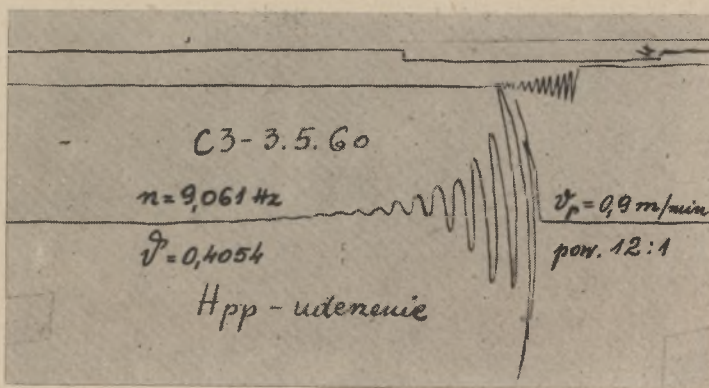 C3-3.5.60
n=9,061 Hz
ϑ=0,4054
Hpp - uderzenie
vp=0,9 m/min
pow. 12:1